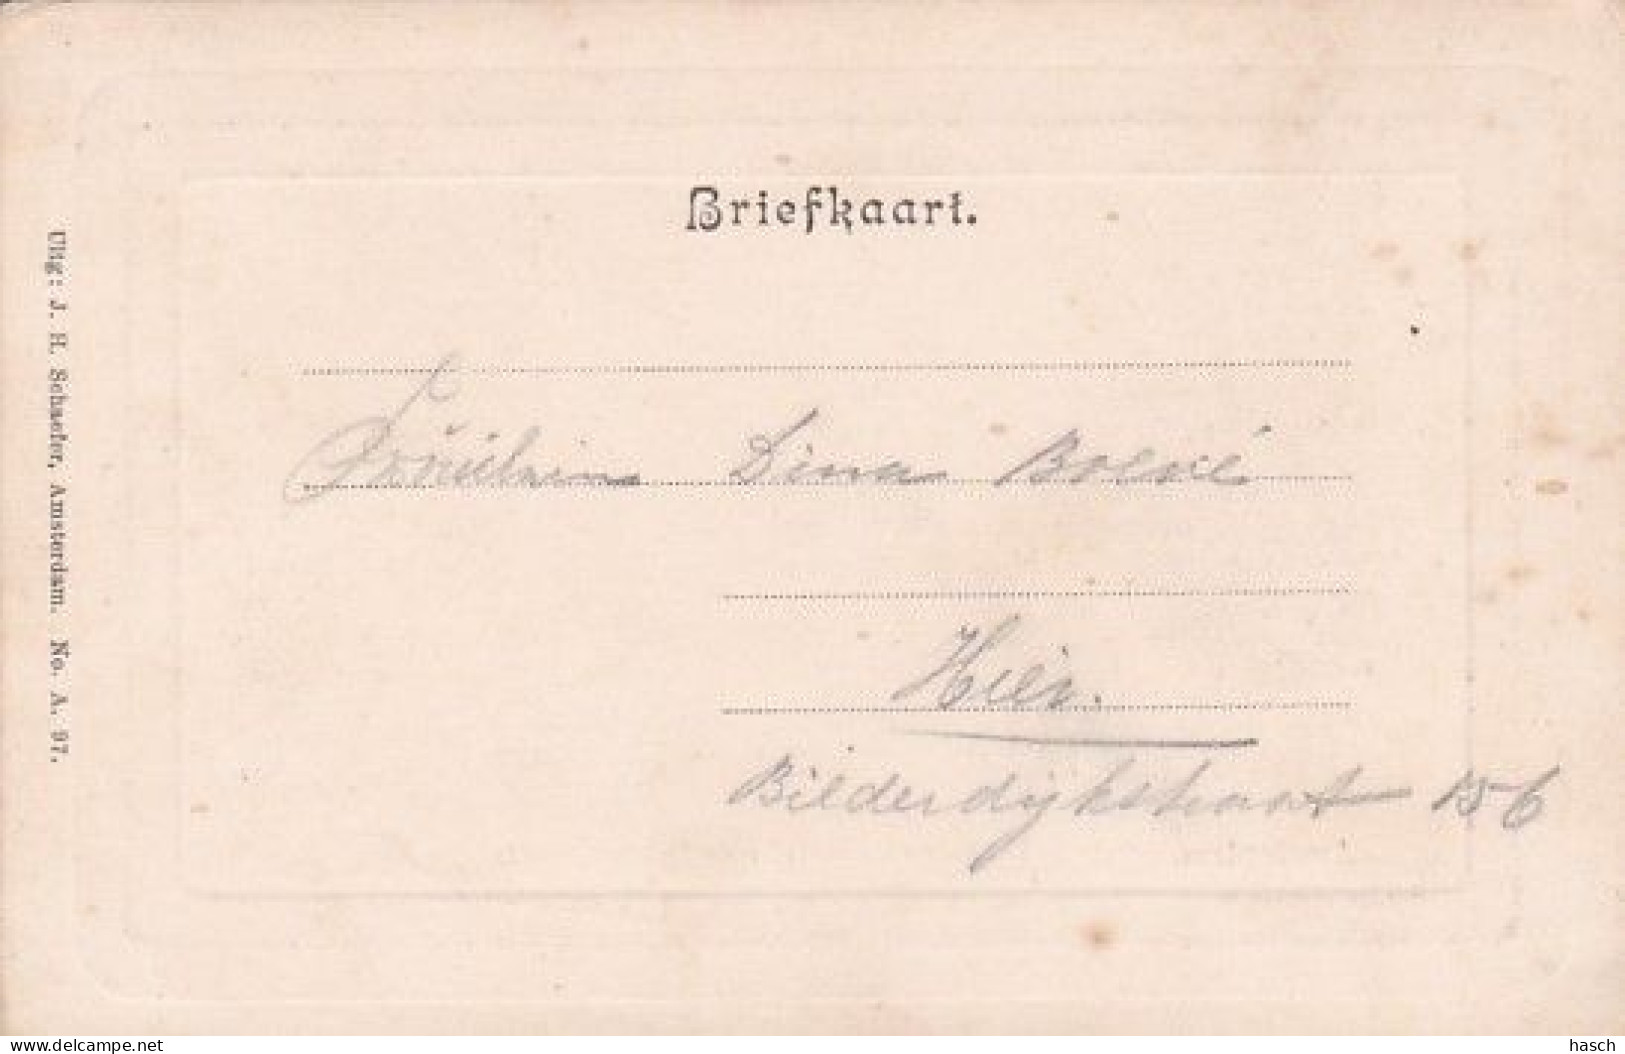 Briefkaart.
Fräulein Dina
Hier.
Bilderdijkstraat 156
Uitg: J. H. Schaefer, Amsterdam. No. A. 97.
www.delcampe.net
hasch